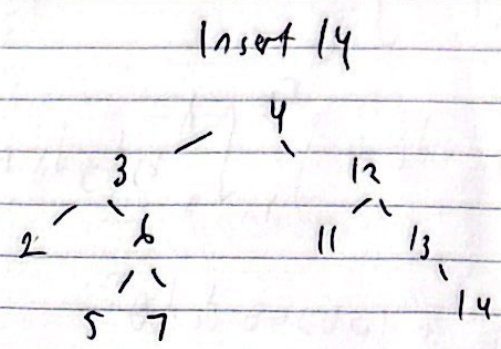 Insert 14
4
3 12
2 6 11 13
5 7 14